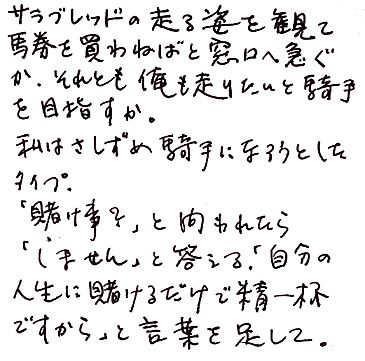 サラブレッドの走る姿を観て
馬券を買わねばと窓口へ急ぐ
か、それとも俺も走りたいと騎手
を目指すか。
私はさしずめ騎手になろうとした
タイプ。
「賭け事を」と問われたら
「しません」と答える。「自分の
人生に賭けるだけで精一杯
ですから」と言葉を足して。